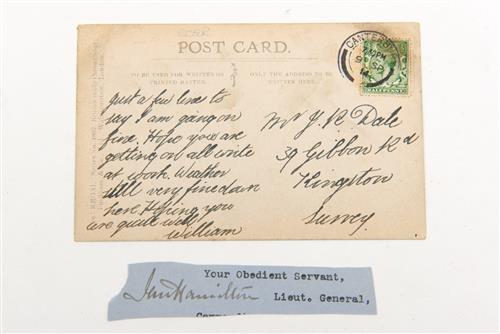 POST CARD.
TO BE USED FOR WRITTEN OR PRINTED MATTER.
ONLY THE ADDRESS TO BE WRITTEN HERE.
CANTERBURY
SP
14
HALFPENNY
just a few lines to
say I am going on
fine. Hope you are
getting on all write
at work. Weather
still very fine down
here. Hoping you
are quite well
William
Mr J. R Dale
39 Gibbon Rd
Kingston
Surrey.
Your Obedient Servant,
Ian Hamilton Lieut. General,